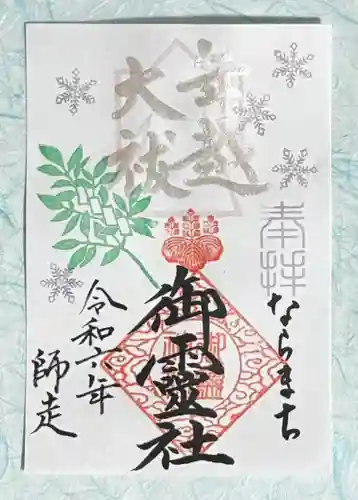 年越
大祓
奉拝
ならまち
御靈社
令和六年
師走